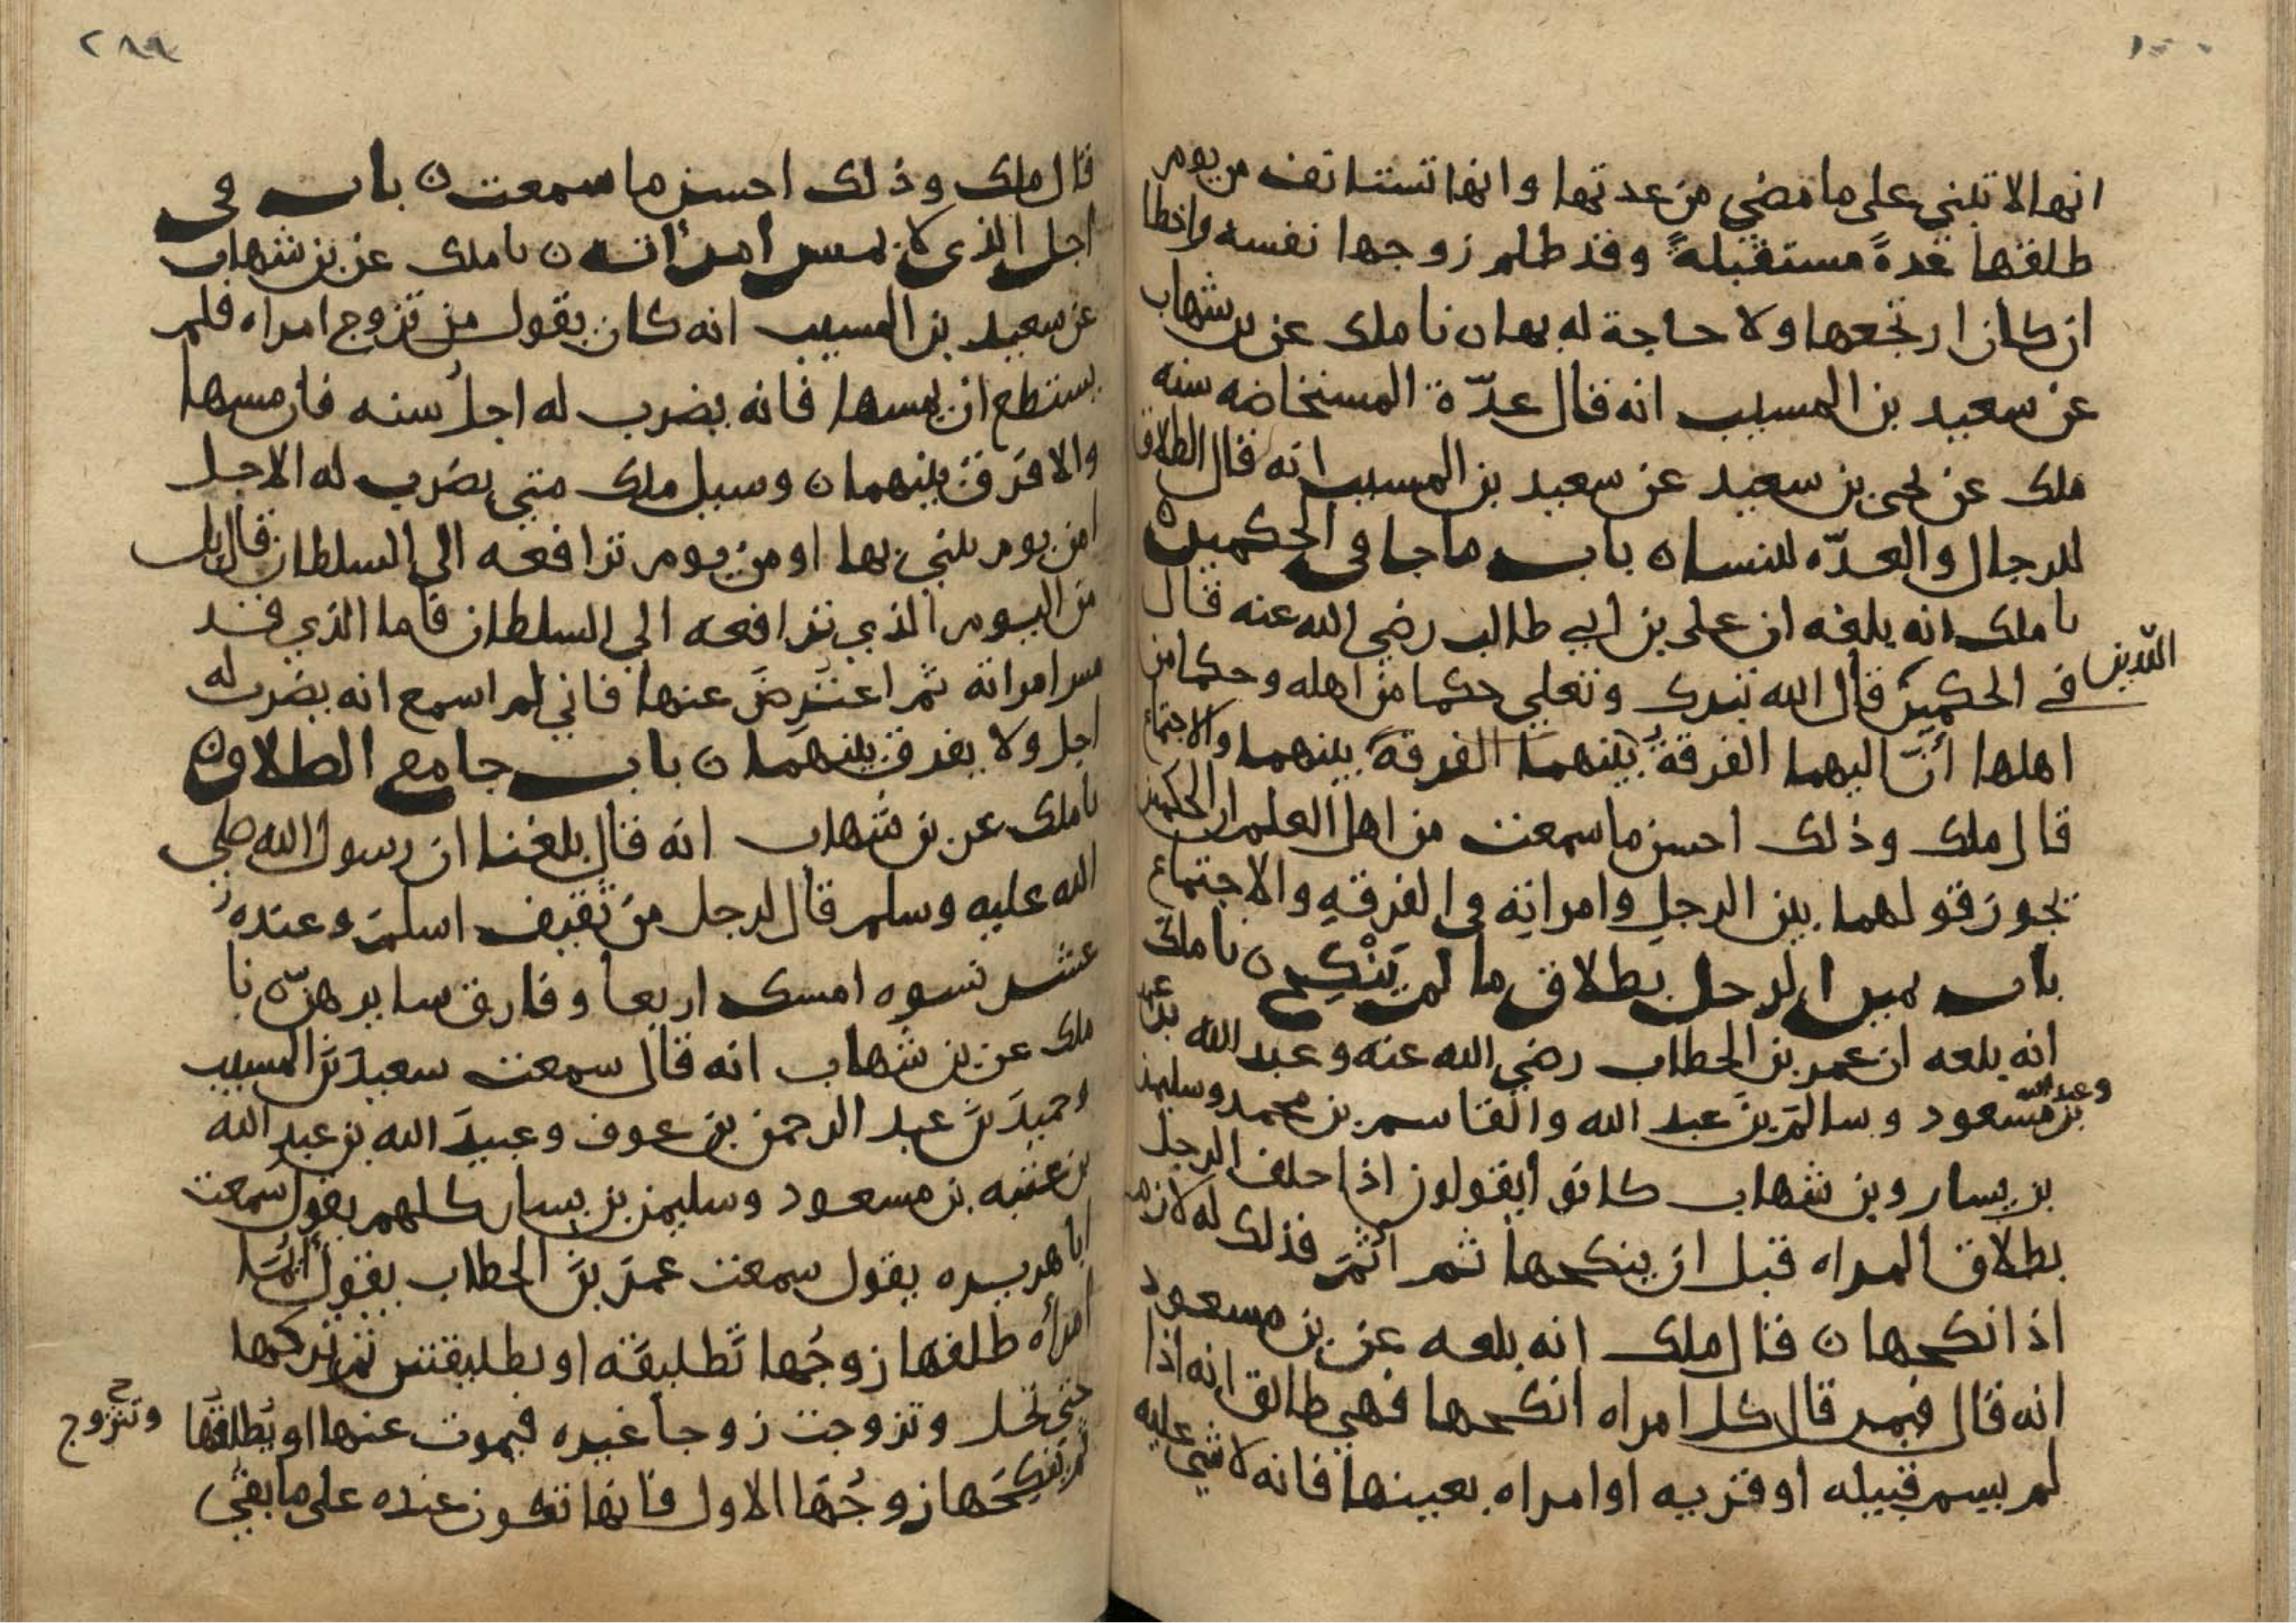 انها لا تبني على ما مضي من عدتها وانها تستانف من يوم
طلقها عدةً مستقبلةً وقد ظلم زوجها نفسه واخطا
ان كان ارتجعها ولا حاجة له بها ن نا ملك عن بن شهاب
عن سعيد بن المسيب انه قال عدّة المستحاضه سنه
ملك عن يحيى بن سعيد عن سعيد بن المسيب انه قال الطلاق
للرجال والعدّه للنسا ن باب ما جا فى الحكمين ن
نا ملك انه بلغه ان على بن ابي طالب رضي الله عنه قال
في الحكمين قال الله تبرك وتعلي حكما من اهله وحكما من
الذين
اهلها أنّ اليهما الفرقةَ بينهما الفرقةَ بينهما والاجتماع
قال ملك وذلك احسن ما سمعت من اهل العلم ان الحكمين
يجوز قولهما بين الرجل وامراتِه في الفرقةِ والاجتماع
باب يمين الرجل بطلاق ما لم يَنْكِح ن نا ملك
انه بلغه ان عمر بن الخطاب رضي الله عنه وعبد الله بن عمر
وعبد الله
بن مسعود وسالمَ بنَ عبد الله والقاسم بن محمد وسليمن
بن يسار وبن شهاب كانوا يقولون اذا حلف الرجل
بطلاق المراه قبل ان ينكحها ثم أثم فذلك له لازم
اذا نكحها ن قال ملك انه بلغه عن بن مسعود
انه قال فيمن قال كل امراه انكحها فهي طالق انه اذا
لم يسم قبيله او قريه او امراه بعينها فانه لا شي عليه
٢٨٩
قال ملك وذلك احسن ما سمعت ن باب في
اجل الذي لا يمس امراته ن نا ملك عن بن شهاب
عن سعيد بن المسيب انه كان يقول من تزوج امراه فلم
يستطع ان يمسها فانه يضرب له اجلُ سنه فان مسها
والا فرق بينهما ن وسيل ملك متي يضرب له الاجل
امن يوم يبني بها او من يوم ترافعه الي السلطان قال بل
من اليوم الذي ترافعه الي السلطان فاما الذي قد
مس امراته ثم اعترض عنها فاني لم اسمع انه يضرب له
اجل ولا يفرق بينهما ن باب جامع الطلاق ن
نا ملك عن بن شهاب انه قال بلغنا ان رسول الله صلي
الله عليه وسلم قال لرجل من ثقيف اسلم وعنده
عشر نسوه امسك اربعا وفارق سايرهنّ ن نا
ملك عن بن شهاب انه قال سمعت سعيدَ بنَ المسيب
وحميدَ بنَ عبد الرحمن بن عوف وعبيدَ الله بن عبد الله
بن عتبه بن مسعود وسليمن بن يسار كلهم يقول سمعت
ابا هريره يقول سمعت عمرَ بنَ الخطاب يقول أيُّمَا
امرأه طلقها زوجُها تَطليقَه او تطليقتين ثم تركها
حتي تحل وتزوجت زوجاً غيره فيموت عنها او يُطلقُها
وتتزوج
ثم يَنكِحَها زوجُها الاول فانها تكون عنده على ما بقي